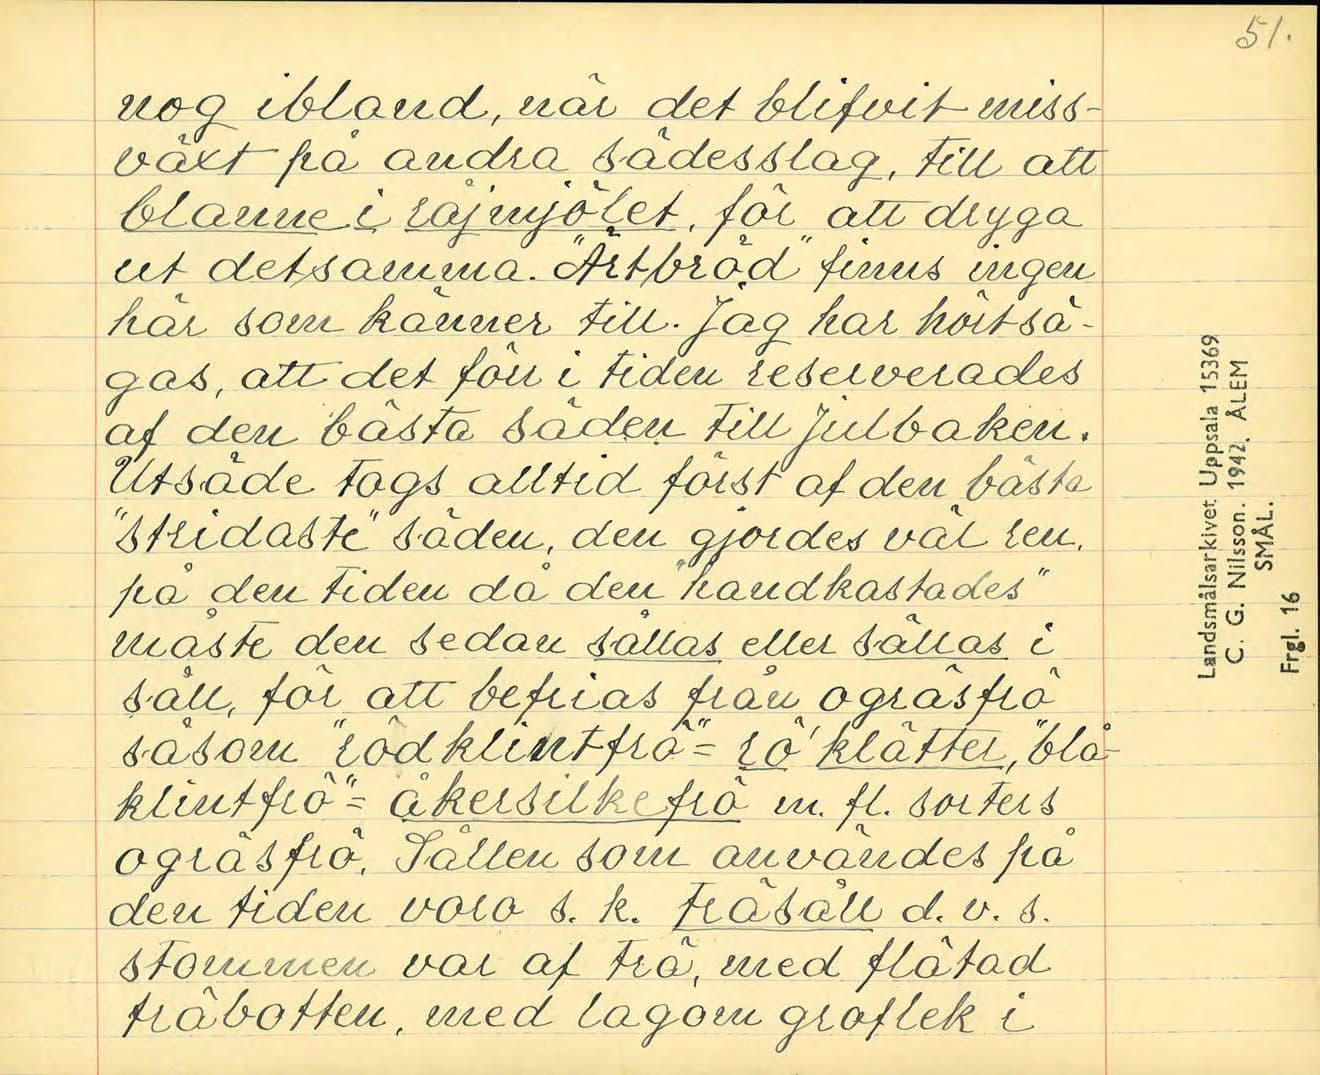 51.
nog ibland, när det blifvit miss-
växt på andra sädesslag, till att
blanne i råjmjölet, för att dryga
ut detsamma. "Ärtbröd" finns ingen
här som känner till. Jag har hört sä-
gas, att det förr i tiden reserverades
af den bästa säden till Julbaken.
Utsäde togs alltid först af den bästa
"stridaste" säden, den gjordes väl ren,
på den tiden då den "handkastades"
måste den sedan sållas eller sällas i
såll, för att befrias från ogräsfrö
såsom "rödklintfrö" = rö' klätter, "blå-
klintfrö" = åkersilkefrö m. fl. sorters
ogräsfrö. Sållen som användes på
den tiden voro s. k. träsåll d. v. s.
stommen var af trä, med flätad
träbotten, med lagom groflek i
Landsmålsarkivet Uppsala 15369
C. G. Nilsson. 1942. ÅLEM
SMÅL.
Frgl. 16